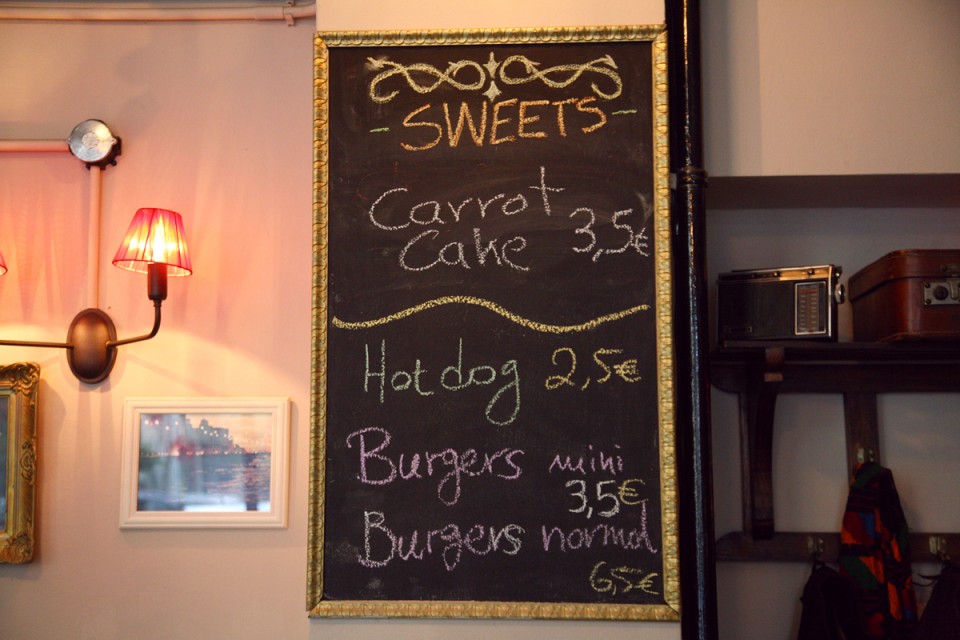 - SWEETS -
Carrot
Cake 3,5€
Hotdog 2,5€
Burgers mini
3,5€
Burgers normal
6,5€